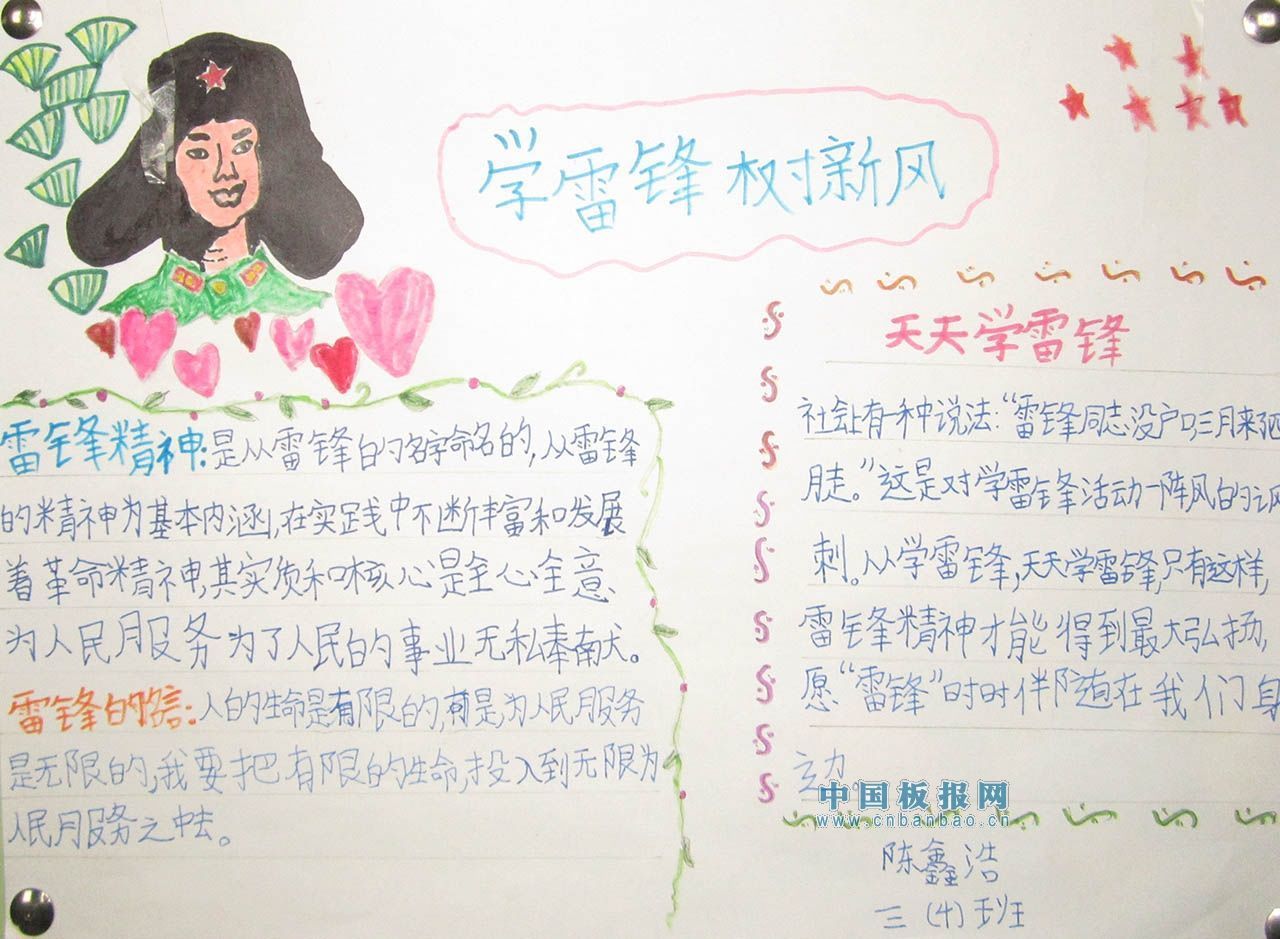 学雷锋 树新风
雷锋精神:是从雷锋的名字命名的,从雷锋
的精神为基本内涵,在实践中不断丰富和发展
着革命精神,其实质和核心是全心全意
为人民服务为了人民的事业无私奉献。
雷锋的:人的生命是有限的,是,为人民服务
是无限的,我要把有限的生命,投入到无限为
人民服务之中去。
天天学雷锋
社会上有一种说法:“雷锋同志没户口,三月来四
月走。”这是对学雷锋活动一阵风的讽
刺。人人学雷锋,天天学雷锋,只有这样,
雷锋精神才能得到最大弘扬,
愿“雷锋”时时伴随在我们身
边。
中国板报网
www.cnbanbao.cn
陈鑫浩
三(4)班